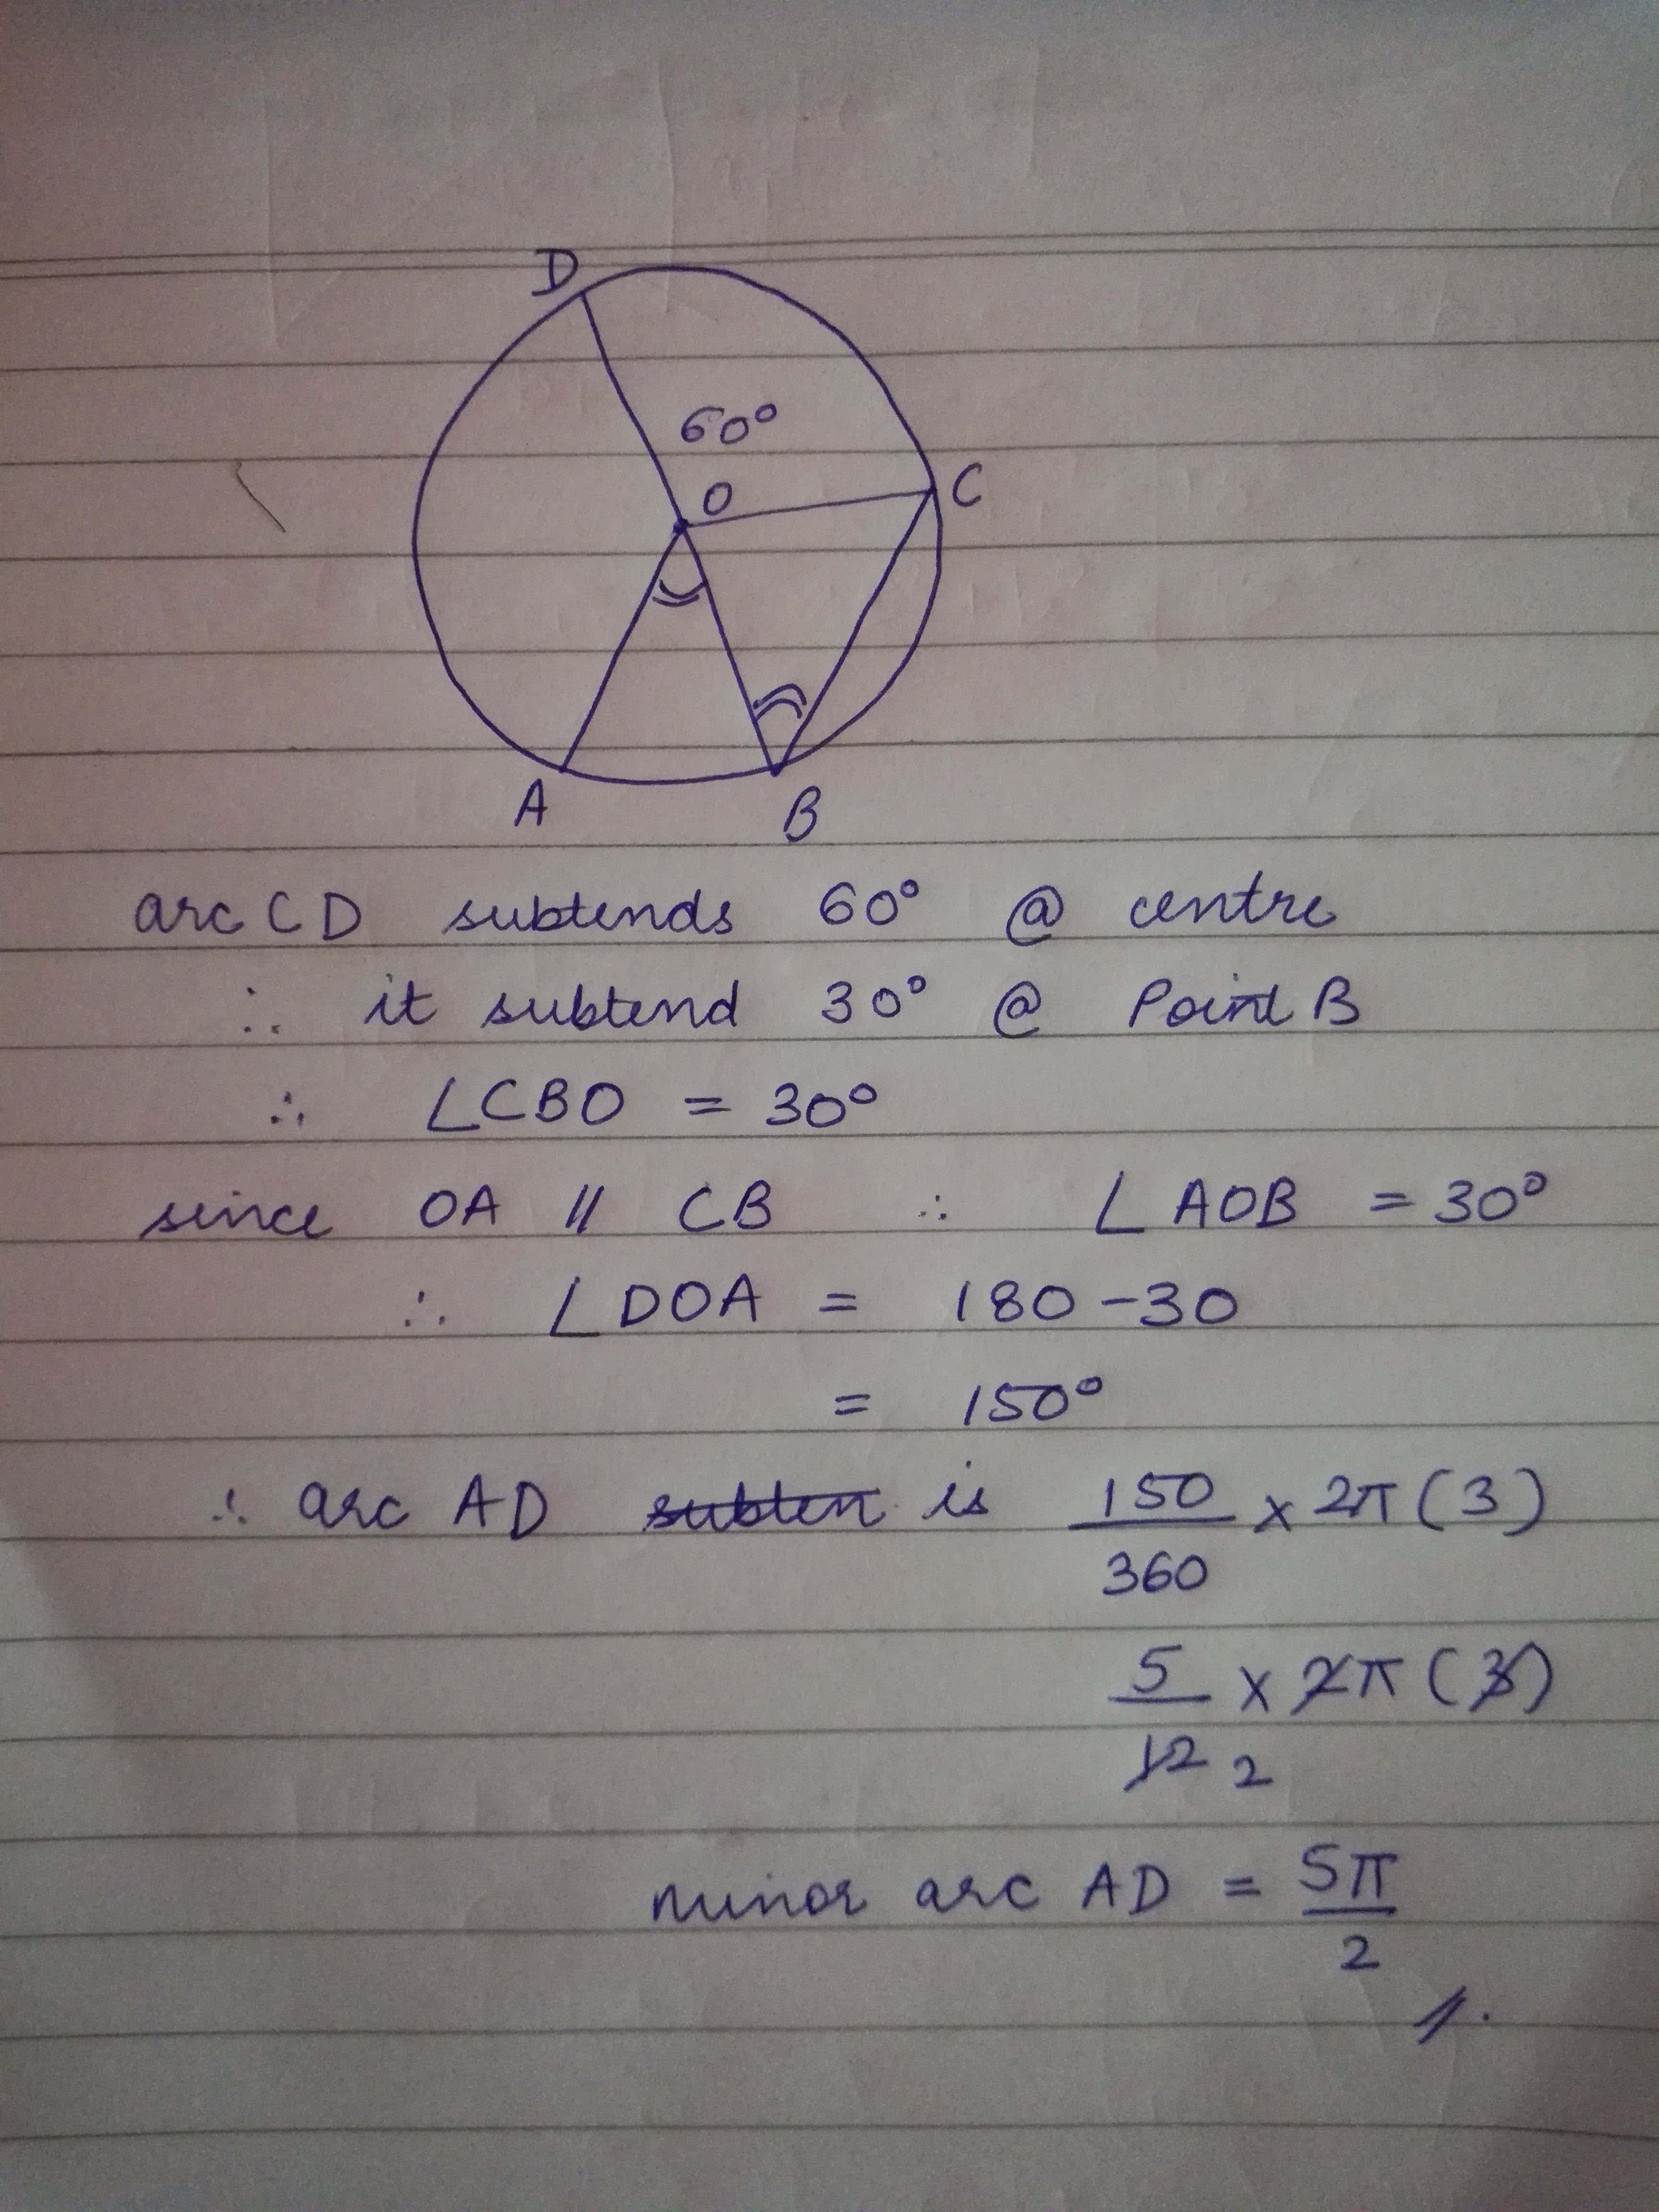 D
60°
O
C
A
B
arc CD subtends 60° @ centre
∴ it subtend 30° @ Point B
∴ ∠CBO = 30°
since OA // CB ∴ ∠AOB = 30°
∴ ∠DOA = 180-30
= 150°
∴ arc AD subten is 150/360 x 2π(3)
5/12 2 x 2π(3)
minor arc AD = 5π/2
//.